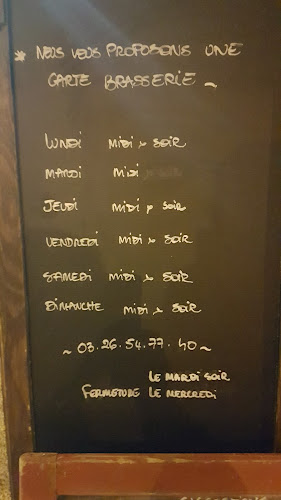 * NOUS VOUS PROPOSONS UNE
CARTE BRASSERIE ~
LUNDI MIDI & SOIR
MARDI MIDI
JEUDI MIDI & SOIR
VENDREDI MIDI & SOIR
SAMEDI MIDI & SOIR
DIMANCHE MIDI & SOIR
~ 03.26.54.77.40 ~
LE MARDI SOIR
FERMETURE LE MERCREDI